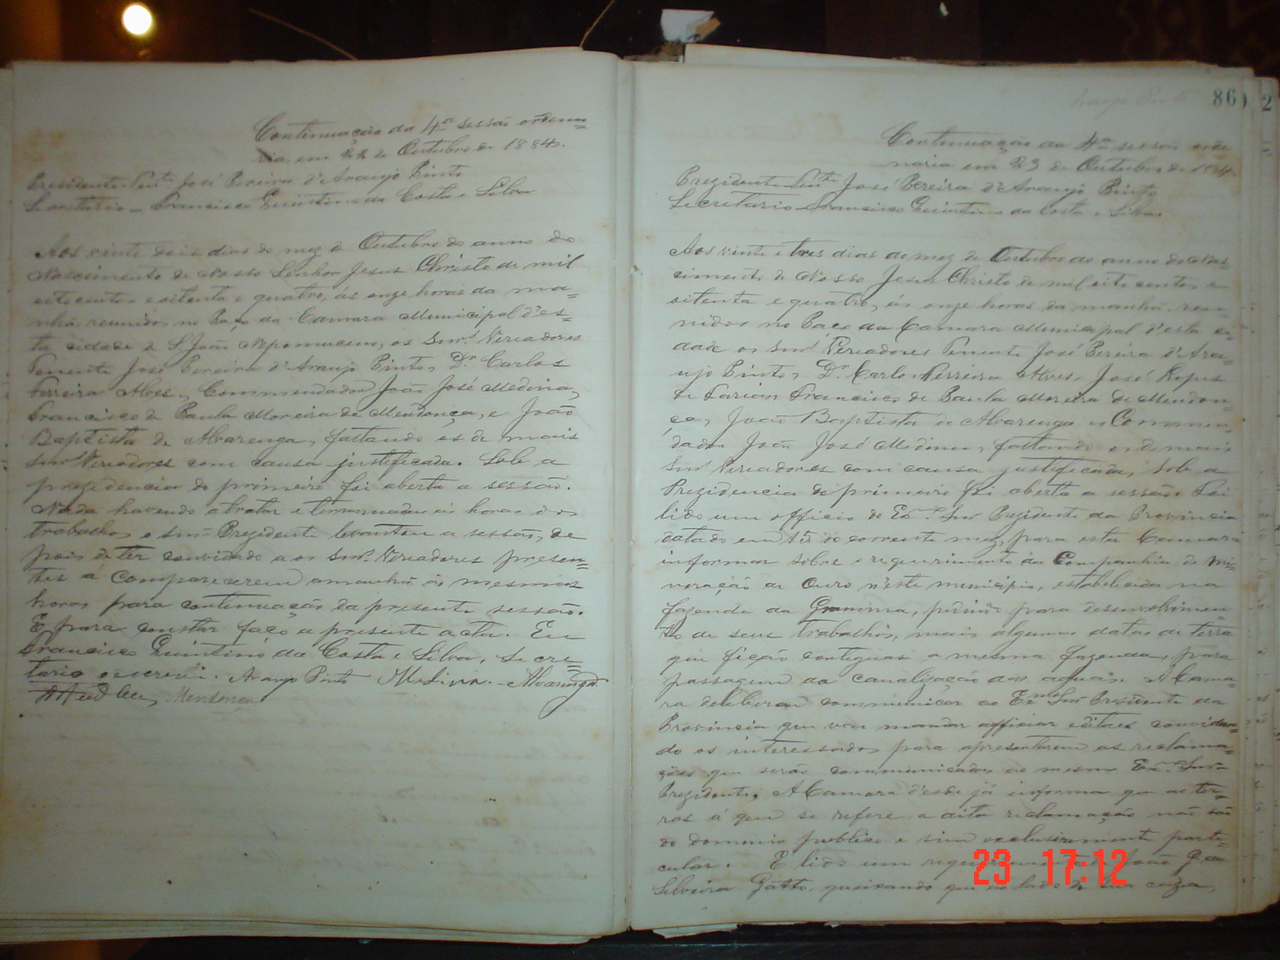 Continuação da 4ª sessão ordina=
ria, em 22 de Outubro de 1884.
Presidente Tenᵗᵉ José Pereira d'Araujo Pinto
Secretario - Francisco Quintino da Costa e Silva
Aos vinte dois dias do mez de Outubro do anno do
Nascimento de Nosso Senhor Jesus Christo de mil
oitocentos e oitenta e quatro, ás onze horas da ma=
nhã, reunidos no Paço da Camara Municipal d'es=
ta cidade de S. João Nepomuceno, os Snrˢ Vereadores
Tenente José Pereira d'Araujo Pinto, Dr. Carlos
Ferreira Alves, Commendador João José Medina,
Francisco de Paula Moreira de Mendonça, e João
Baptista de Alvarenga, faltando os de mais
Snrˢ Vereadores com causa justificada. Sob a
prezidencia do primeiro foi aberta a sessão.
Nada havendo a tratar e terminadas as horas dos
trabalhos o Snr. Prezidente levantou a sessão, de
pois de ter convidado a os Snrˢ Vereadores presen=
tes á comparecerem amanhã ás mesmas
horas para continuação da presente sessão.
E para constar faço a presente acta. Eu
Francisco Quintino da Costa e Silva, Secre=
tario o escrevi. Araujo Pinto Medina. Alvarenga
Mendonça
86
2
Continuação da 4ª sessão ordi
naria em 23 de Outubro de 1884.
Prezidente Tenᵗᵉ José Pereira d'Araujo Pinto
Secretario Francisco Quintino da Costa e Silva.
Aos vinte e tres dias do mez de Outubro do anno do Nas=
cimento de Nosso Jesus Christo de mil oito centos e
oitenta e quatro, ás onze horas da manhã, reu=
nidos no Paço da Camara Municipal d'esta ci=
dade os Snrˢ Vereadores Tenente José Pereira d'Ara=
ujo Pinto, Dr. Carlos Ferreira Alves, José
de Farias, Francisco de Paula Moreira de Mendon=
ça, João Baptista de Alvarenga e Commen=
dador João José Medina, faltando os de mais
Snrˢ Vereadores com causa justificada, sob a
Prezidencia do primeiro foi aberta a sessão. Foi
lido um officio do Exᵐᵒ Snr Prezidente da Provincia
datado em 15 do corrente mez, para esta Camara
informar sobre o requerimento da Companhia de Mi=
neração de Ouro n'este municipio, estabelecida na
fazenda da Gramma, pedindo para desenvolvimen=
to de seus trabalhos, mais algumas datas de terra
que fição contiguas a mesma fazenda, para
passagem da canalização das aguas. A Cama=
ra deliberou communicar ao Exᵐᵒ Snr Prezidente da
Provincia que vai mandar affixar editaes convidan=
do os interessados para apresentarem as reclama=
ções que serão communicadas ao mesmo Exᵐᵒ Snr
Prezidente. A Camara desde já informa que as ter=
ras á que se refere a dita reclamação não são
do dominio publico e sim exclusivamente parti=
cular. E lido um requerimento de João
Silveira Gatto, queixando que ao lado de sua caza,
23 17:12